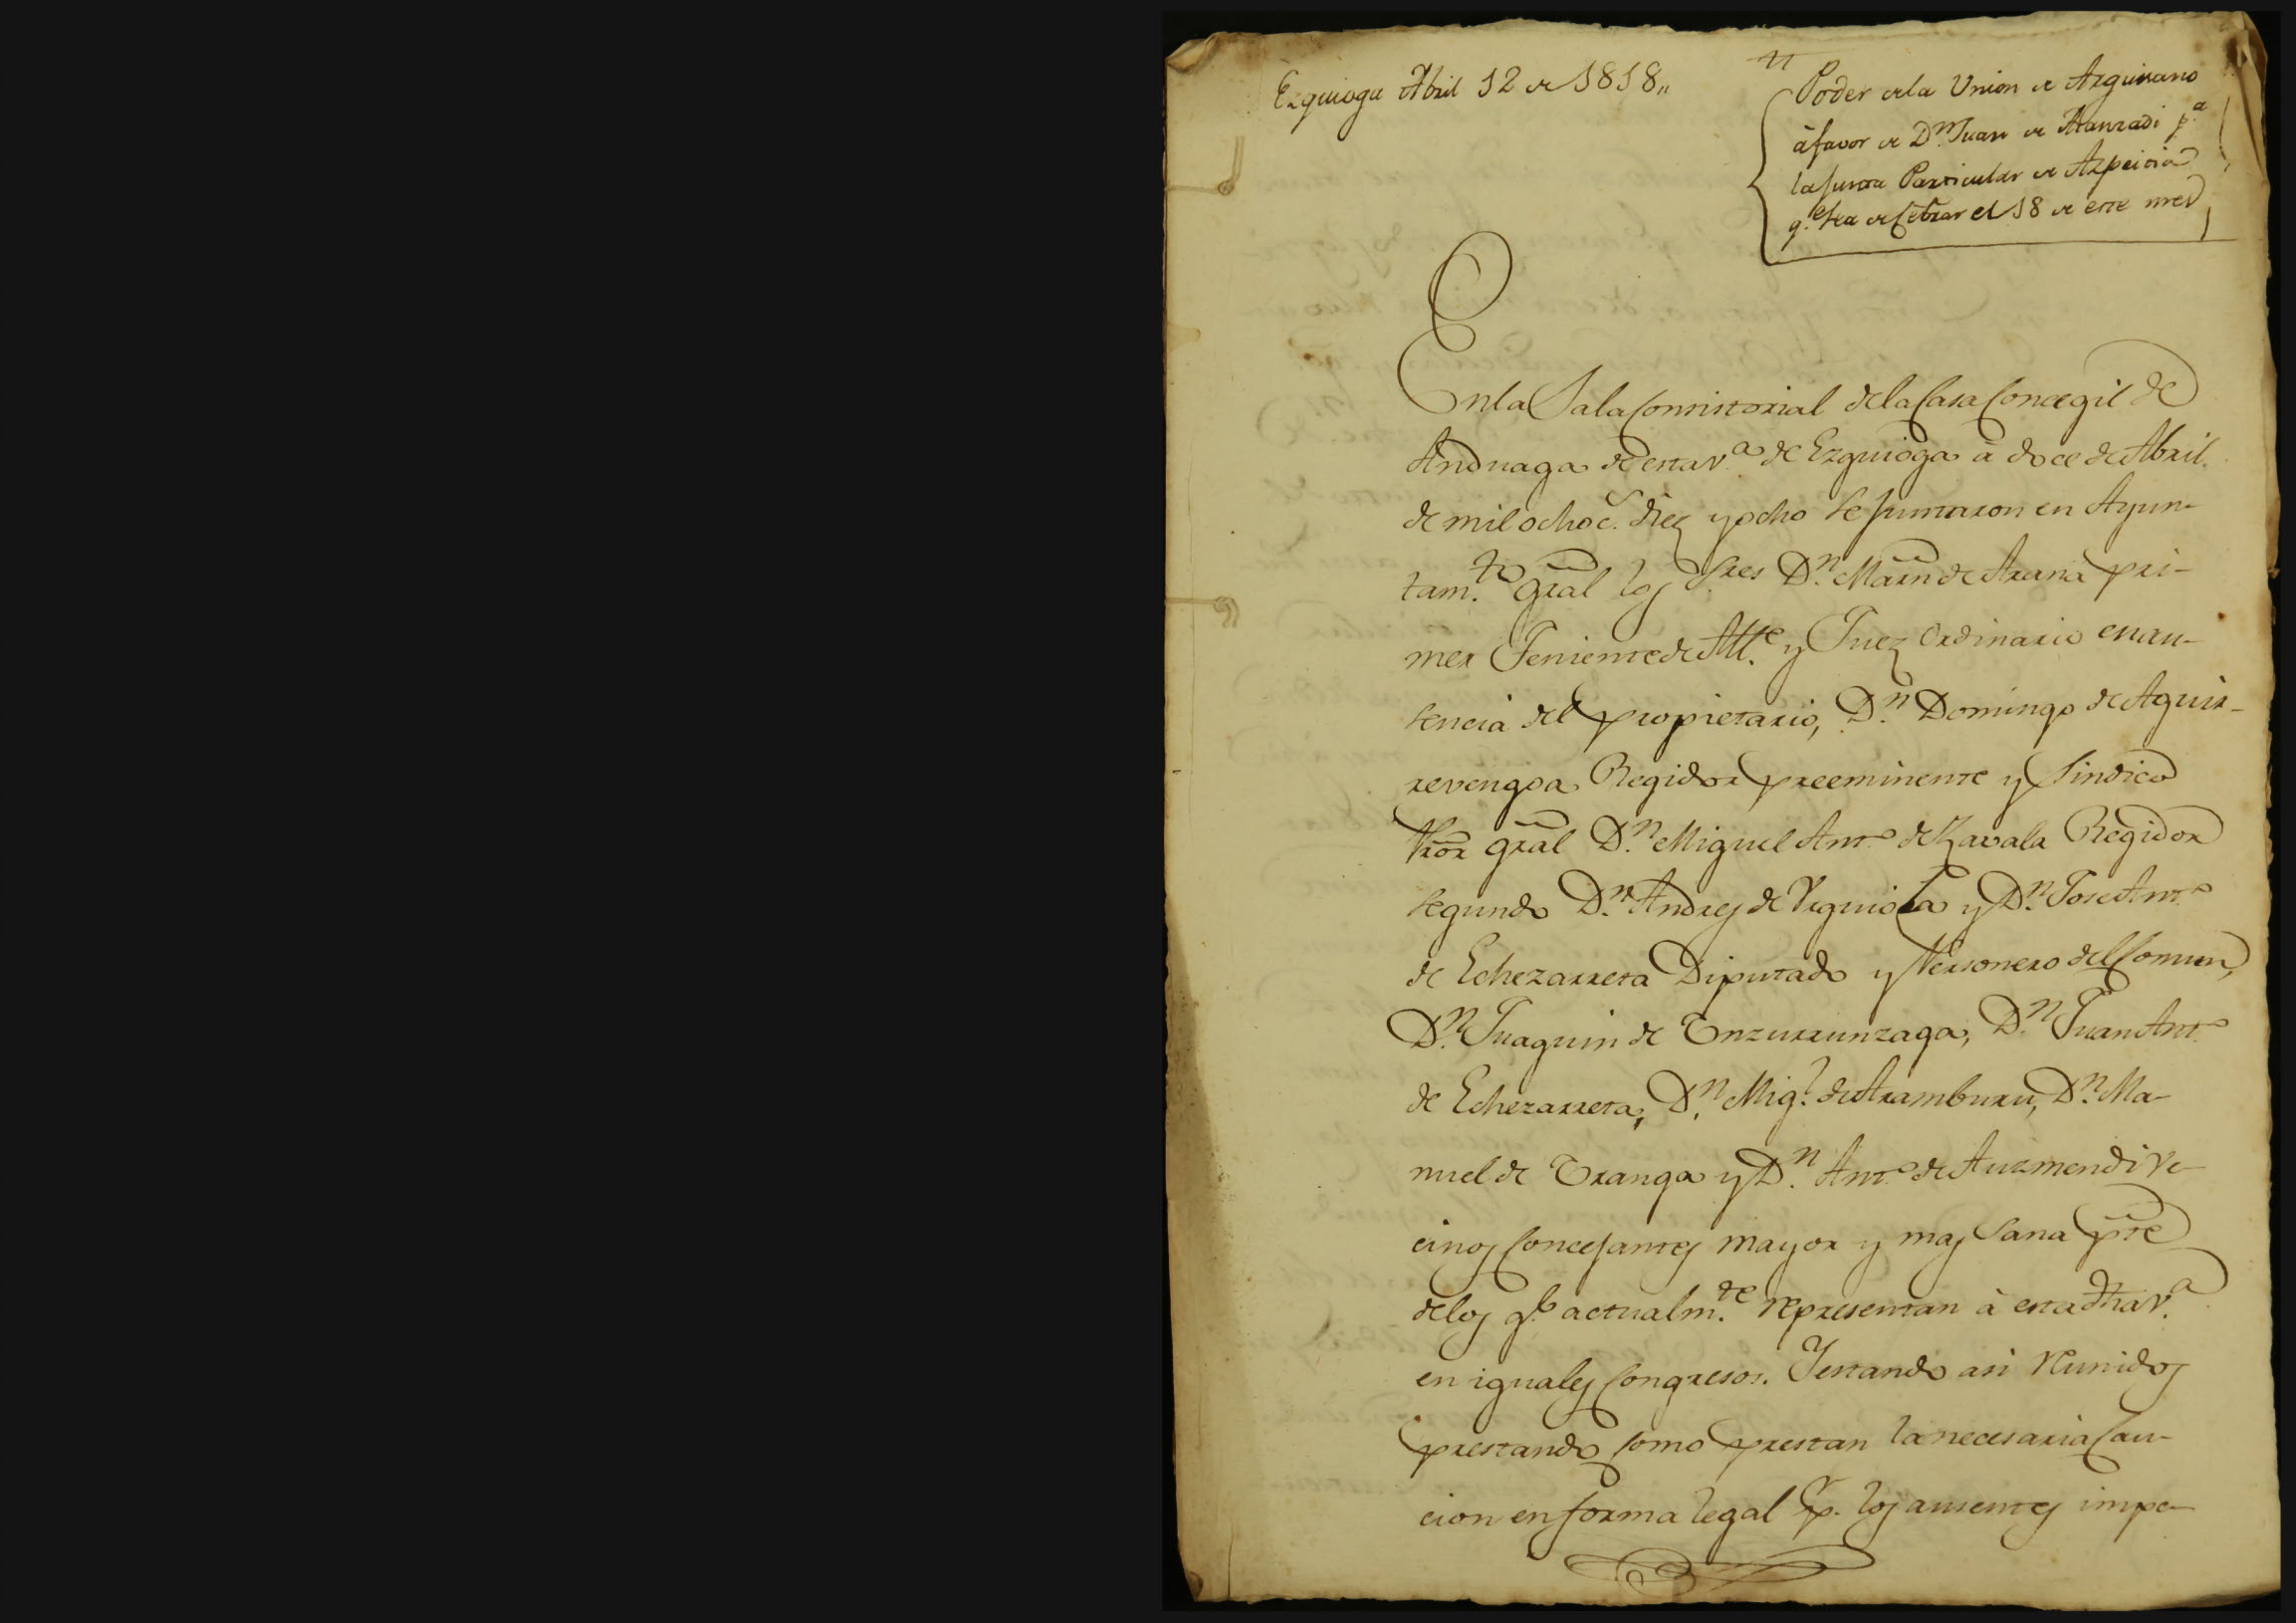 Ezquioga Abril 12 de 1818,,
Poder de la Union de Arguisano
à favor de Dn. Juan de Aranzadi pa.
la Junta Particular de Azpeitia
qe. se ha de Celebrar el 18 de este mes
En la Sala Consistorial de la Casa Concegil de
Anduaga de esta va. de Ezquioga à doce de Abril
de mil ochoc.s diez y ocho se juntaron en Ayun-
tam.to gral los Sres Dn. Marn de Arana pri-
mer Teniente de Alle. y Juez Ordinario en au-
sencia del propietario, Dn. Domingo de Aguir-
revengoa Regidor preeminente y Sindico
Pror gral Dn. Miguel Anto. de Zavala Regidor
segundo Dn. Andres de Urguiola y Dn. Jose Anto.
de Echezarreta Diputado y Personero del Comun,
Dn. Juaquin de Ynzurrunzaga, Dn. Juan Anto.
de Echezarreta, Dn. Migl. de Aramburu, Dn. Ma-
nuel de Yranga y Dn. Anto. de Auzmendi ve-
cinos Concejantes mayor y mas Sana pte
de los qe. actualm.te representan à esta dha va.
en iguales Congresos. Y estando asi reunidos
prestando como prestan la necesaria Cau-
cion en forma legal pr. los ausentes impe-